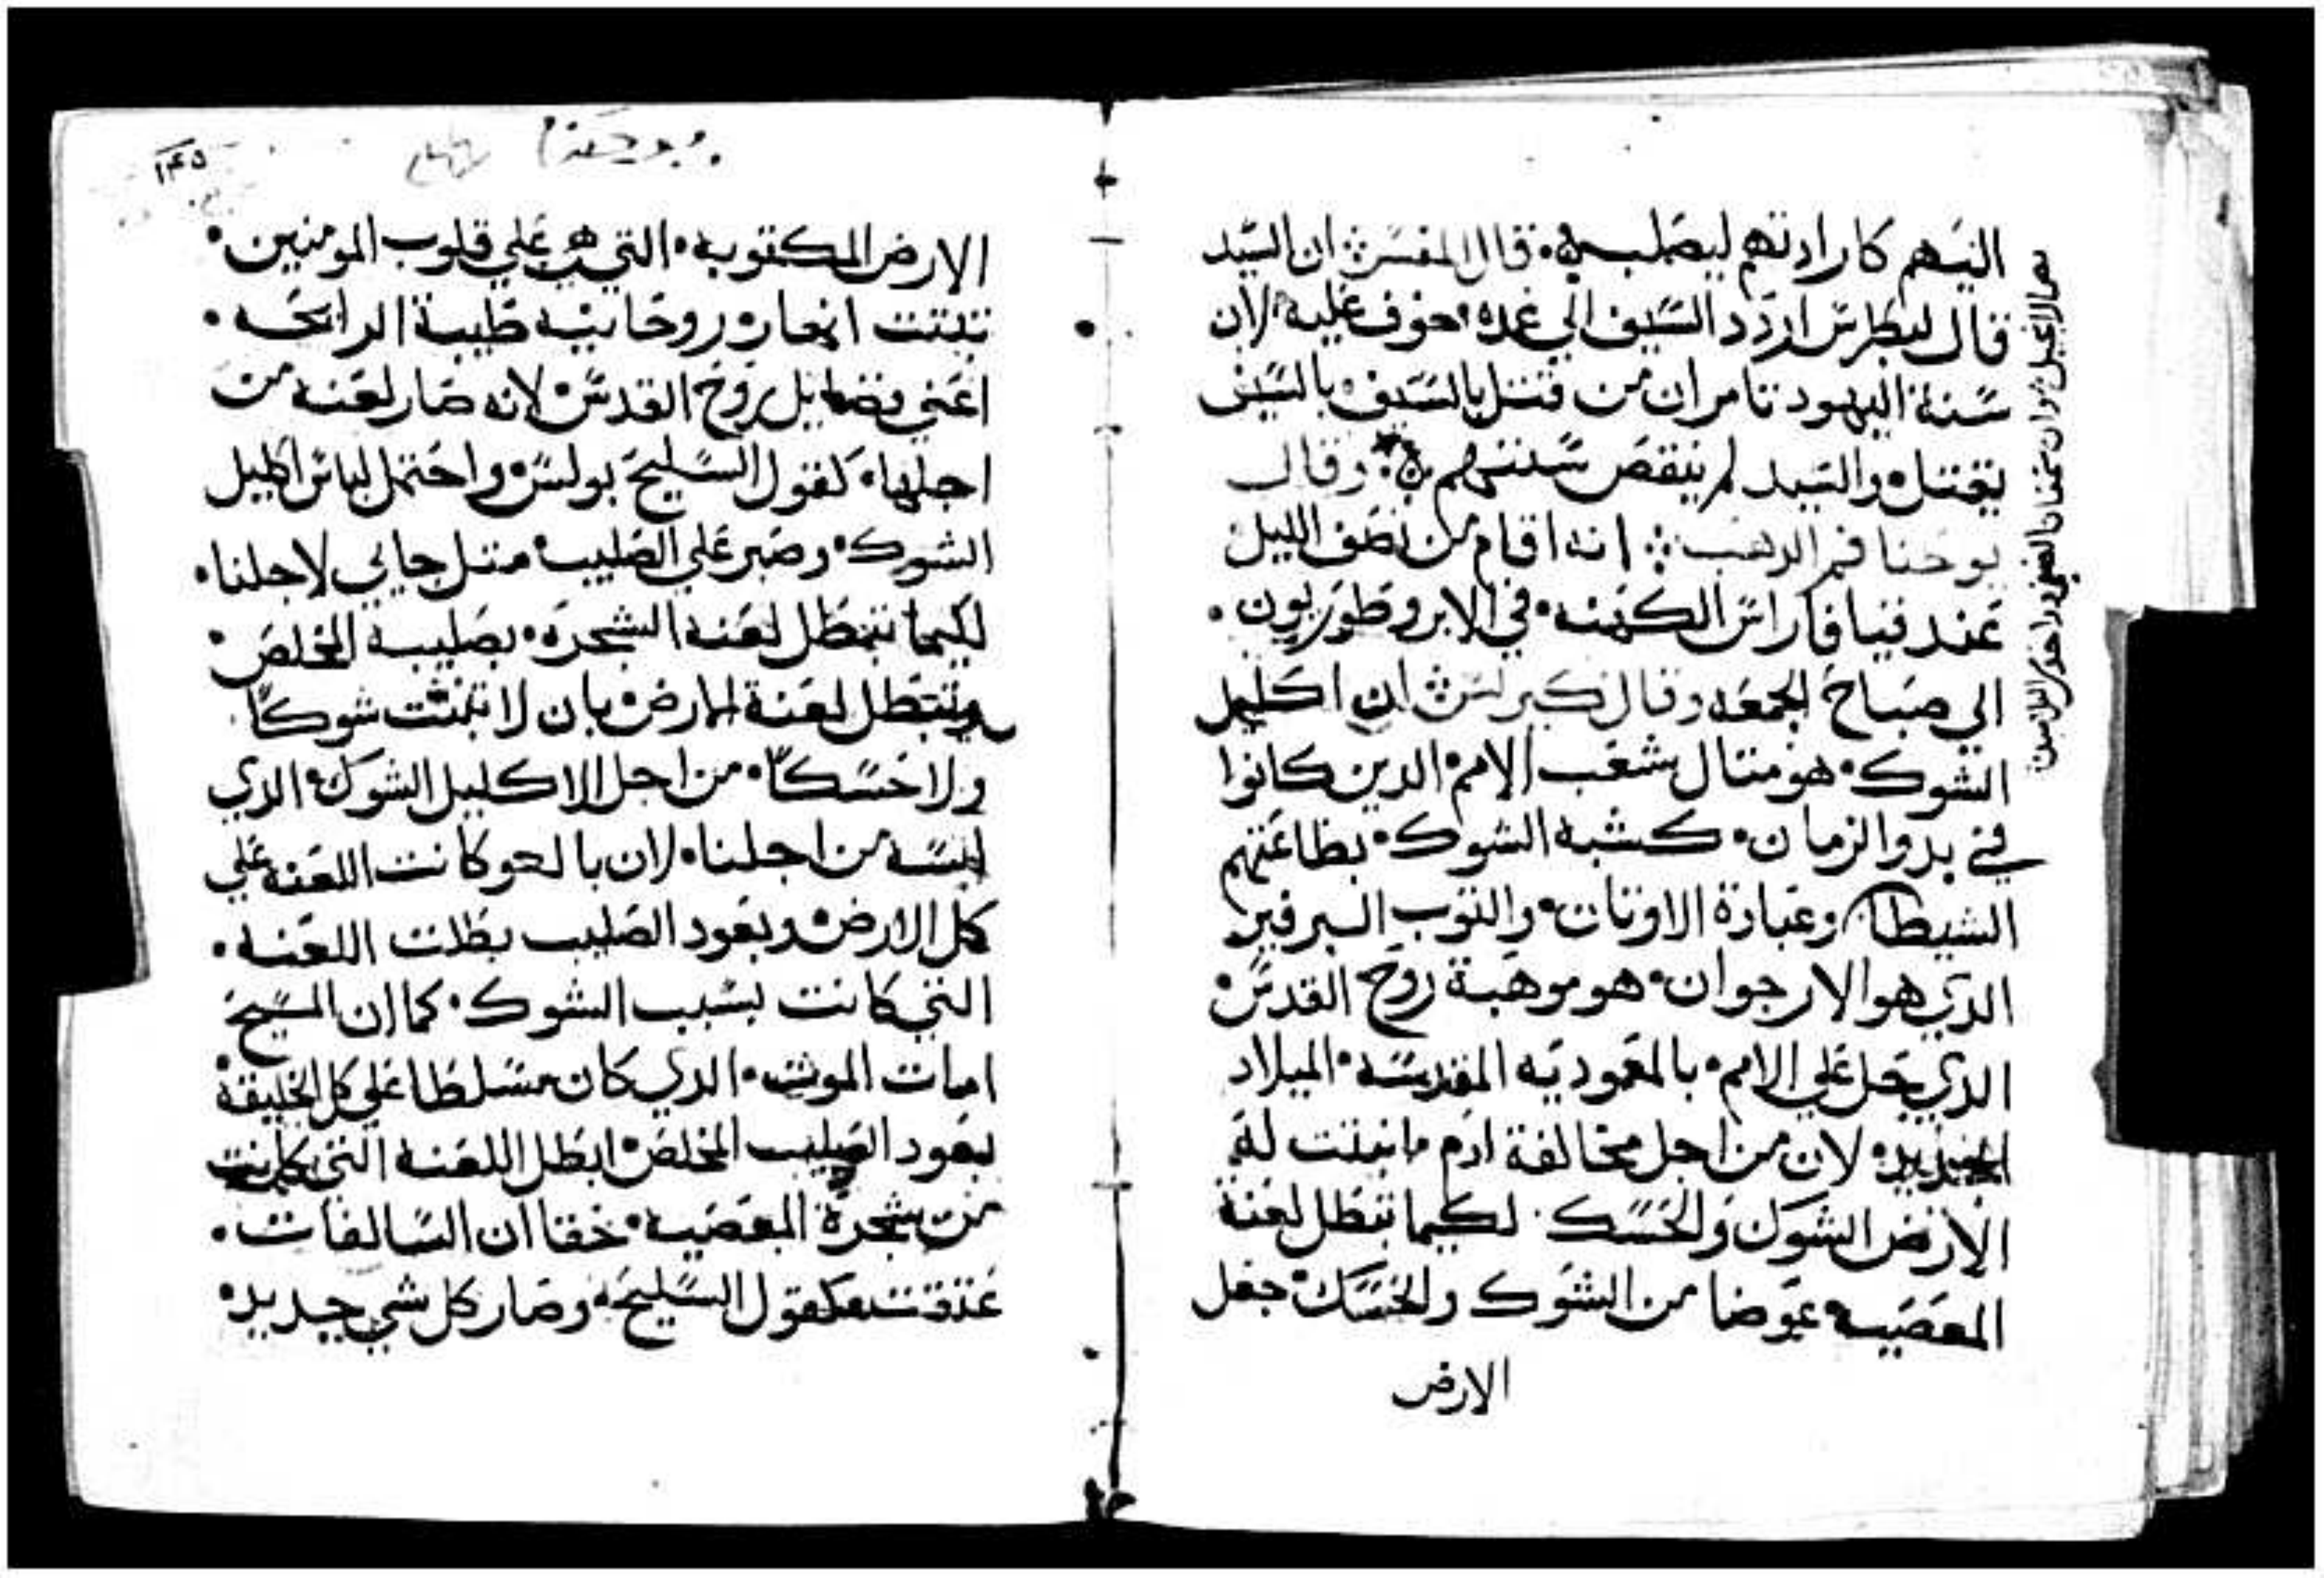 اليهم كارادتهم ليصلبوه • قال المفسر ان السيد
قال لبطرس اردد السيف الي غمده • خوف عليه • لان
سنة اليهود تامر ان من قتل بالسيف بالسيف
يقتل • والسيد لم ينقص سنتهم • وقال
يوحنا فم الدهب انه اقام من نصف الليل
عند قيافا راس الكهنه • في الابروطوريون •
الي صباح الجمعه وقال كيرلس ان اكليل
الشوك • هو متال شعب الامم • الدين كانوا
في بدو الزمان • كشبه الشوك • بطاعتهم
الشيطان وعبادة الاوتان • والتوب البرفير
الدي هو الارجوان • هو موهبة روح القدس •
الدي حل علي الامم • بالمعموديه المقدسه • الميلاد
الجديد • لان من اجل مخالفة ادم ما نبتت له
الارض الشوك والحسك • لكيما تبطل لعنة
المعصيه عوضا من الشوك والحسك • جعل
الارض
١٤٥
الارض المكتوبه • التي هي علي قلوب المومنين •
تنبتت اتمار روحانيه طيبة الرايحه •
اعني فضايل روح القدس • لانه صار لعنه من
اجلها • كقول السليح بولس • واحتمل لباس اكليل
الشوك • وصبر علي الصليب • متل جاني لاجلنا •
لكيما تبطل لعنة الشجره • بصليب المخلص •
وتبطل لعنة الارض • بان لا تنبت شوكاً
ولا حسكاً • من اجل الاكليل الشوك • الدي
لبسه من اجلنا • لان بالعو كانت اللعنه علي
كل الارض • وبعود الصليب بطلت اللعنه •
التي كانت بسبب الشوك • كما ان المسيح
امات الموت • الدي كان مسلطا علي كل الخليقة
بعود الصليب المخلص • ابطل اللعنة التي كانت
من شجرة المعصيه • حقا ان السالفات •
عتقت كقول السليح • وصار كل شي جديد •